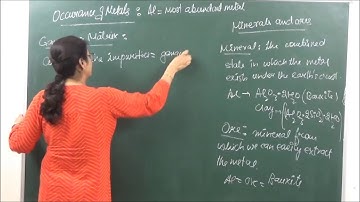 Occurrence of Metals : Al = Most abundant metal
Matrix :
the impurities = gangue
Minerals and ores
Mineral : the combined
state in which the metal
exists under the earth's crust.
Al → Al2O3·2H2O (Bauxite)
Clay → (Al2O3·2SiO2·2H2O)
Ore : mineral from
which we can easily extract
the metal
Al = ore = Bauxite